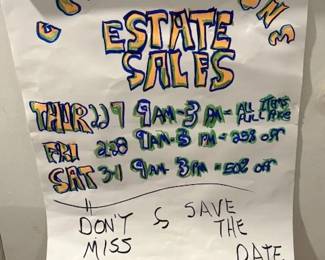 ESTATE
SALES
THUR 227 9AM-3 PM= ALL ITEMS FULL PRICE
FRI 2-28 9AM-3 PM= 25% off
SAT 3-1 9AM-3PM= 50% off
DON'T MISS & SAVE THE DATE